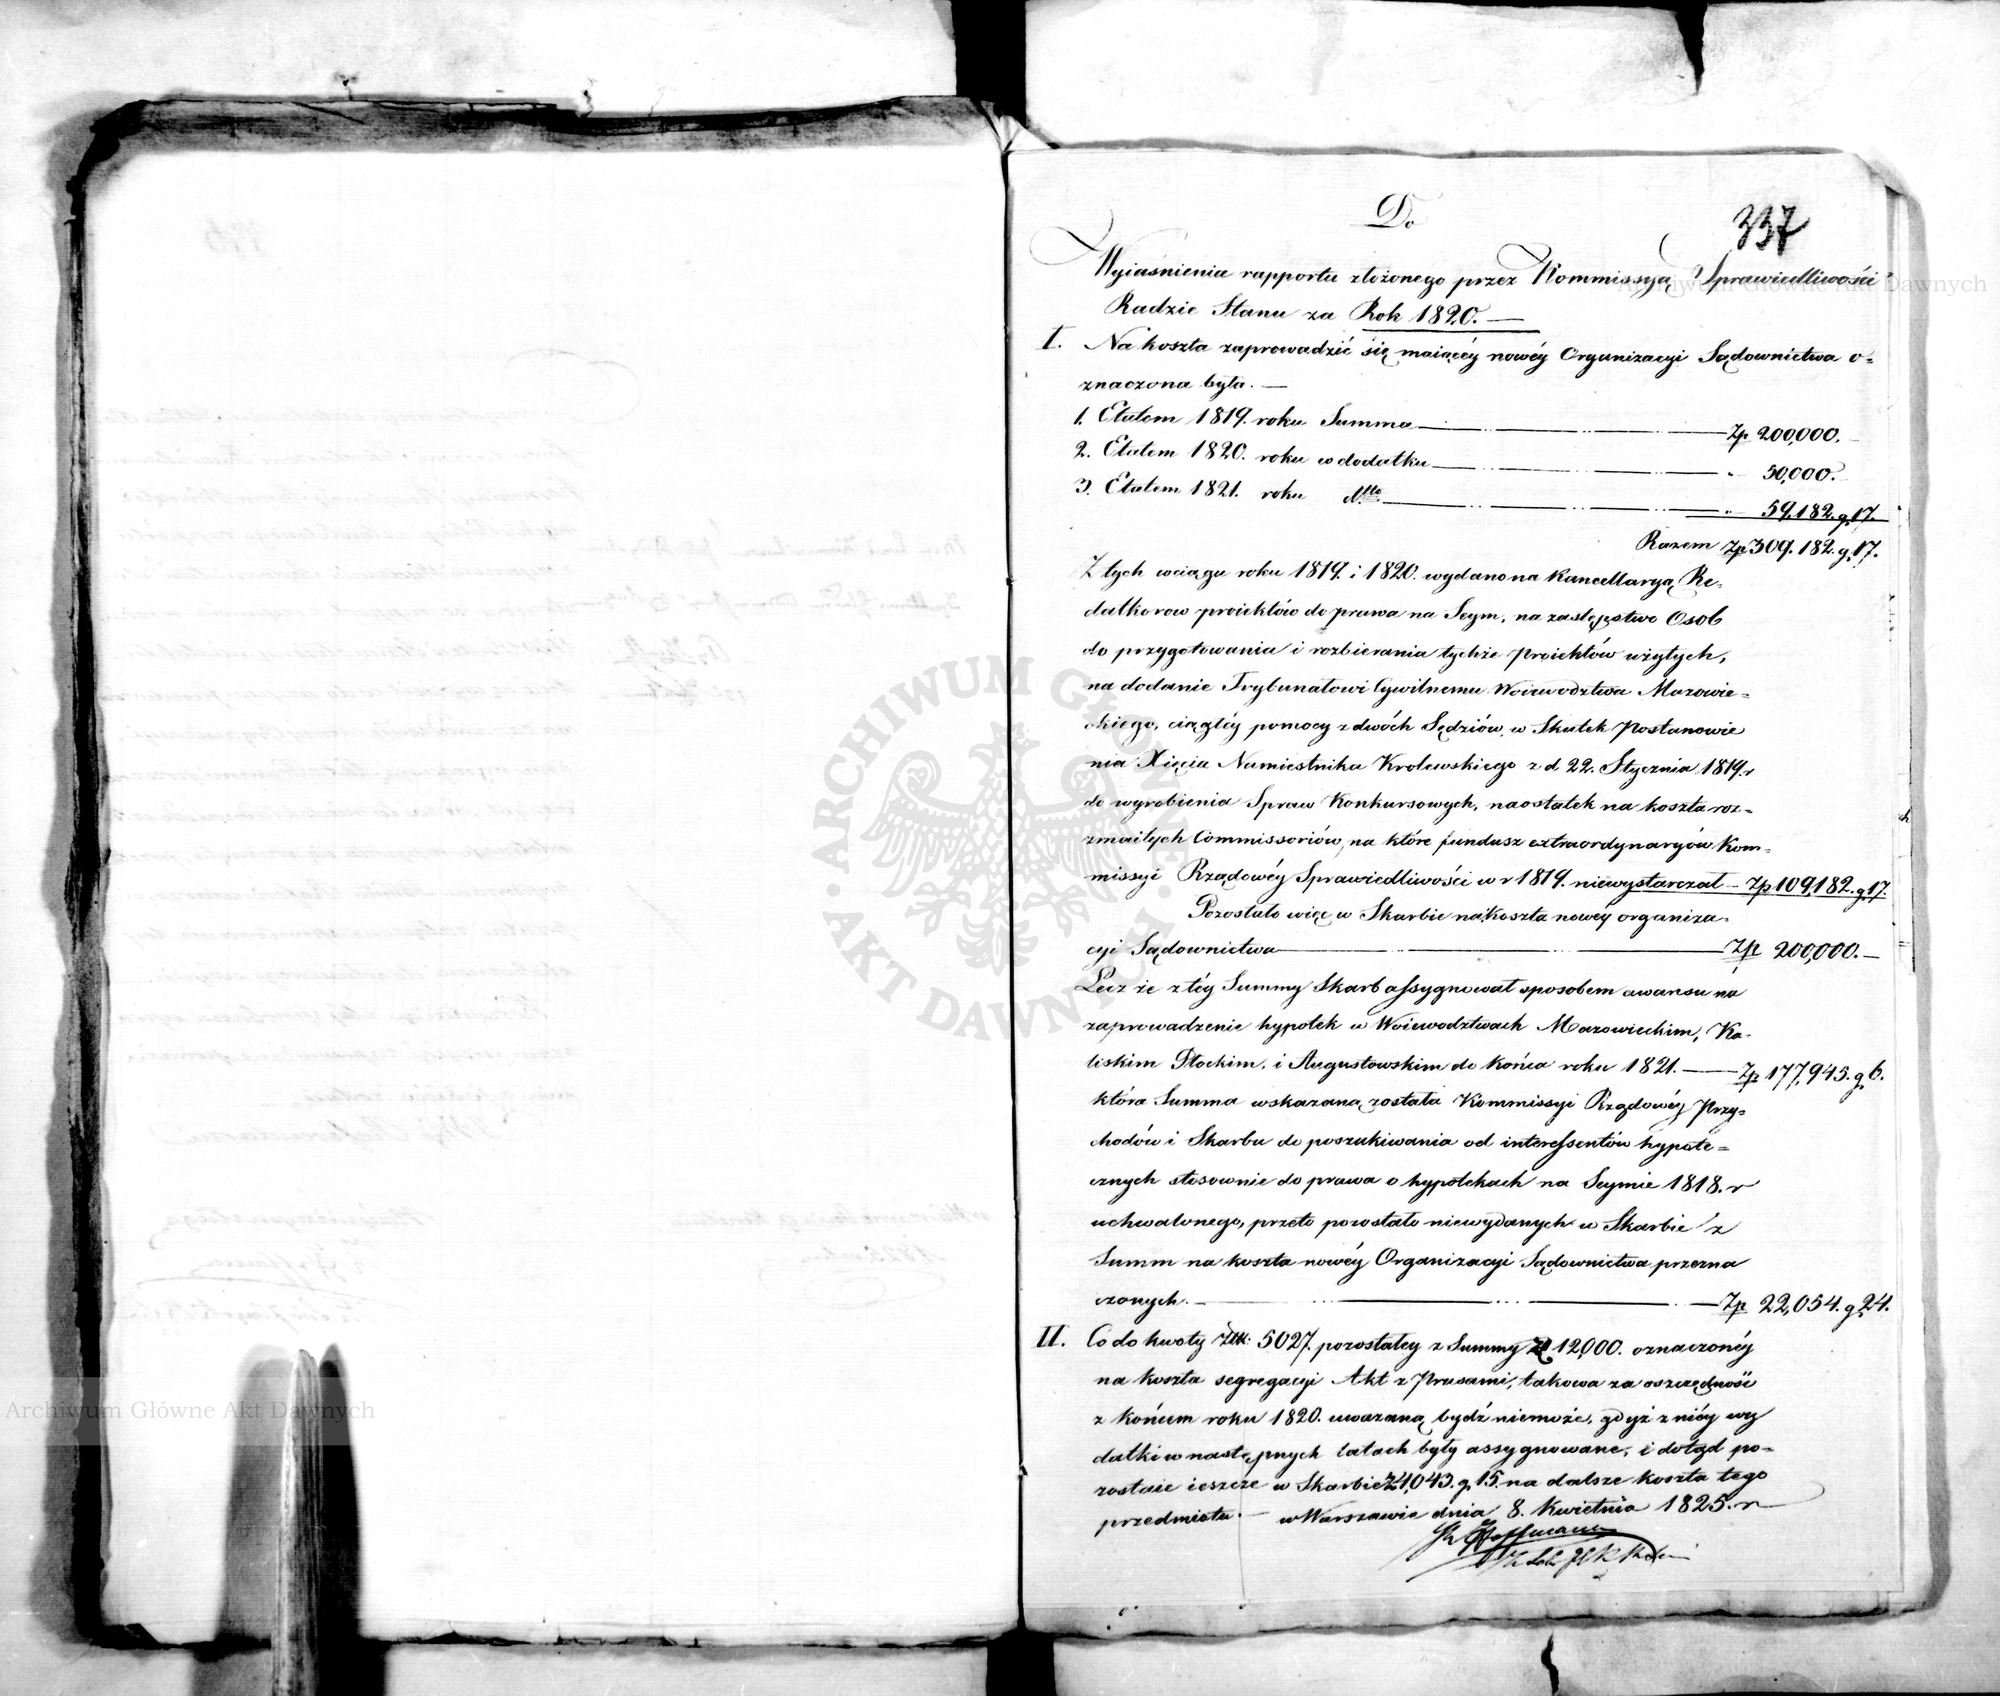 Do
337
Wyiaśnienia rapportu złożonego przez Kommissyą Sprawiedliwości
Radzie Stanu za Rok 1820. —
I. Na koszta zaprowadzić się maiącéy nowéy Organizacyi Sądownictwa o=
znaczona była. —
1. Etatem 1819. roku Summa — Zp 200,000.
2. Etatem 1820. roku w dodatku — " 50,000.
3. Etatem 1821. roku — " 59,182. g 17.
Razem Zp 309,182. g 17.
Z tych wciągu roku 1819. i 1820. wydano na Kancellaryą Re=
daktorow proiektów do prawa na Seym, na zastępstwo Osob
do przygotowania i rozbierania tychże Proiektów użytych,
na dodanie Trybunałowi Cywilnemu Woiewodztwa Mazowie=
ckiego, ciągłéy pomocy z dwóch Sędziów, w Skutek Postanowie
nia Xięcia Namiestnika Krolewskiego z d 22. Stycznia 1819. r
do wyrobienia Spraw Konkursowych, naostatek na koszta roz=
zmaitych Commissoriów, na które fundusz extraordynaryów Kom=
missyi Rządowéy Sprawiedliwości w r 1819. niewystarczał — Zp 109,182. g 17.
Pozostało więc w Skarbie na koszta nowéy organiza=
cyi Sądownictwa — Zp 200,000. —
Lecz że z téy Summy Skarb assygnował sposobem awansu na
zaprowadzenie hypotek w Woiewodztwach Mazowieckim, Ka=
liskim Płockim, i Augustowskim do końca roku 1821. — Zp 177,945. g 6.
która Summa wskazaną została Kommissyi Rządowéy Przy=
chodów i Skarbu do poszukiwania od interessentów hypote=
cznych stosownie do prawa o hypotekach na Seymie 1818. r
uchwalonego, przeto pozostało niewydanych w Skarbie z
Summ na koszta nowéy Organizacyi Sądownictwa przezna
czonych. — Zp 22,054. g 24.
II. Co do kwoty Złł: 5027. pozostałey z Summy Zł 12,000. oznaczonéy
na koszta segregacyi Akt z Prusami, takowa za oszczędność
z końcem roku 1820. uważaną bydź niemoże, gdyż z niéy wy
datki w następnych latach były assygnowane, i dotąd po=
zostaie ieszcze w Skarbie Zł 4,043. g 15. na dalsze koszta tego
przedmiotu. — w Warszawie dnia 8. Kwietnia 1825. r
Hoffmann
Archiwum Główne Akt Dawnych
Archiwum Główne Akt Dawnych
ARCHIWUM GŁÓWNE AKT DAWNYCH